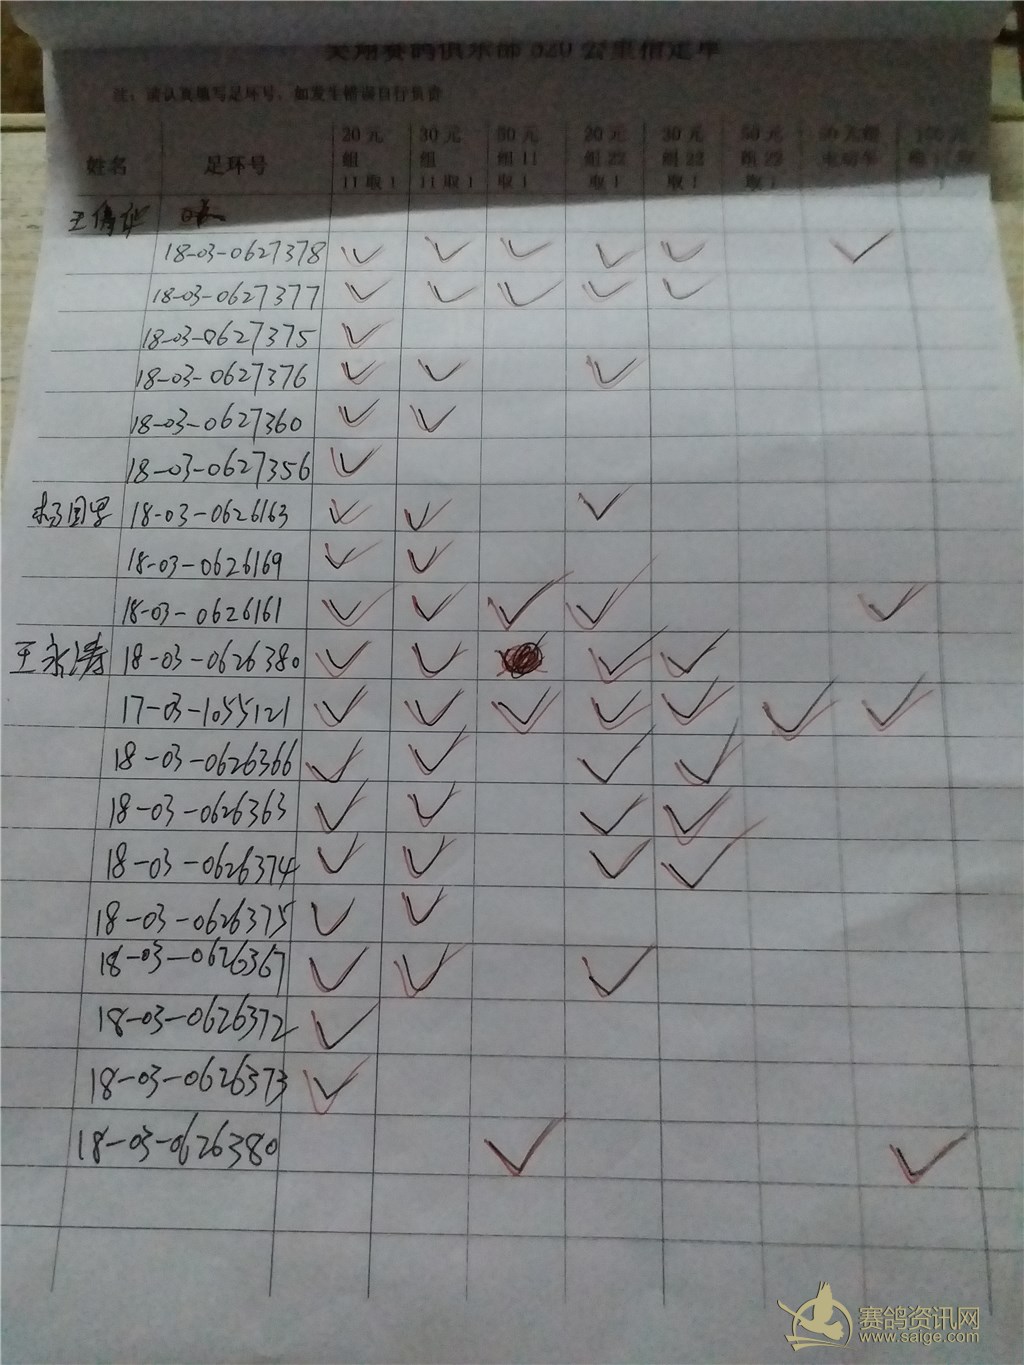 翔赛鸽俱乐部520公里指定单
注：请认真填写足环号，如发生错误自行负责
姓名 足环号 20元组11取1 30元组11取1 50元组11取1 20元组22取1 30元组22取1 50元组22取1
王
18-03-0627378 ✓ ✓ ✓ ✓ ✓ ✓
18-03-0627377 ✓ ✓ ✓ ✓ ✓
18-03-0627375 ✓
18-03-0627376 ✓ ✓ ✓
18-03-0627360 ✓ ✓
18-03-0627356 ✓
杨国 18-03-0626163 ✓ ✓ ✓
18-03-0626169 ✓ ✓
18-03-0626161 ✓ ✓ ✓ ✓ ✓
王永涛 18-03-0626380 ✓ ✓ ✓ ✓
17-03-1055121 ✓ ✓ ✓ ✓ ✓ ✓ ✓
18-03-0626366 ✓ ✓ ✓ ✓
18-03-0626363 ✓ ✓ ✓ ✓
18-03-0626374 ✓ ✓ ✓ ✓
18-03-0626375 ✓ ✓
18-03-0626367 ✓ ✓ ✓
18-03-0626372 ✓
18-03-0626373 ✓
18-03-0626380 ✓ ✓
赛鸽资讯网
www.saige.com